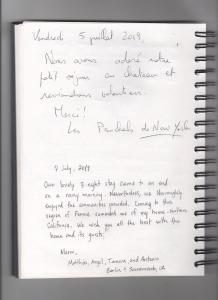 Vendredi 5 juillet 2019,
Nous avons adoré notre
petit séjour au chateau et
reviendrons volontiers.
Merci!
Les de New York
8 July, 2019
Our lovely 3 night stay came to an end
on a rainy morning. Nevertheless, we thoroughly
enjoyed the amenities provided. Coming to this
region of France reminded me of my home - northern
California. We wish you all the best with this
home and its guests!
Warm,
Matthias, Angel, Tamara and
Berlin + Sacramento, CA